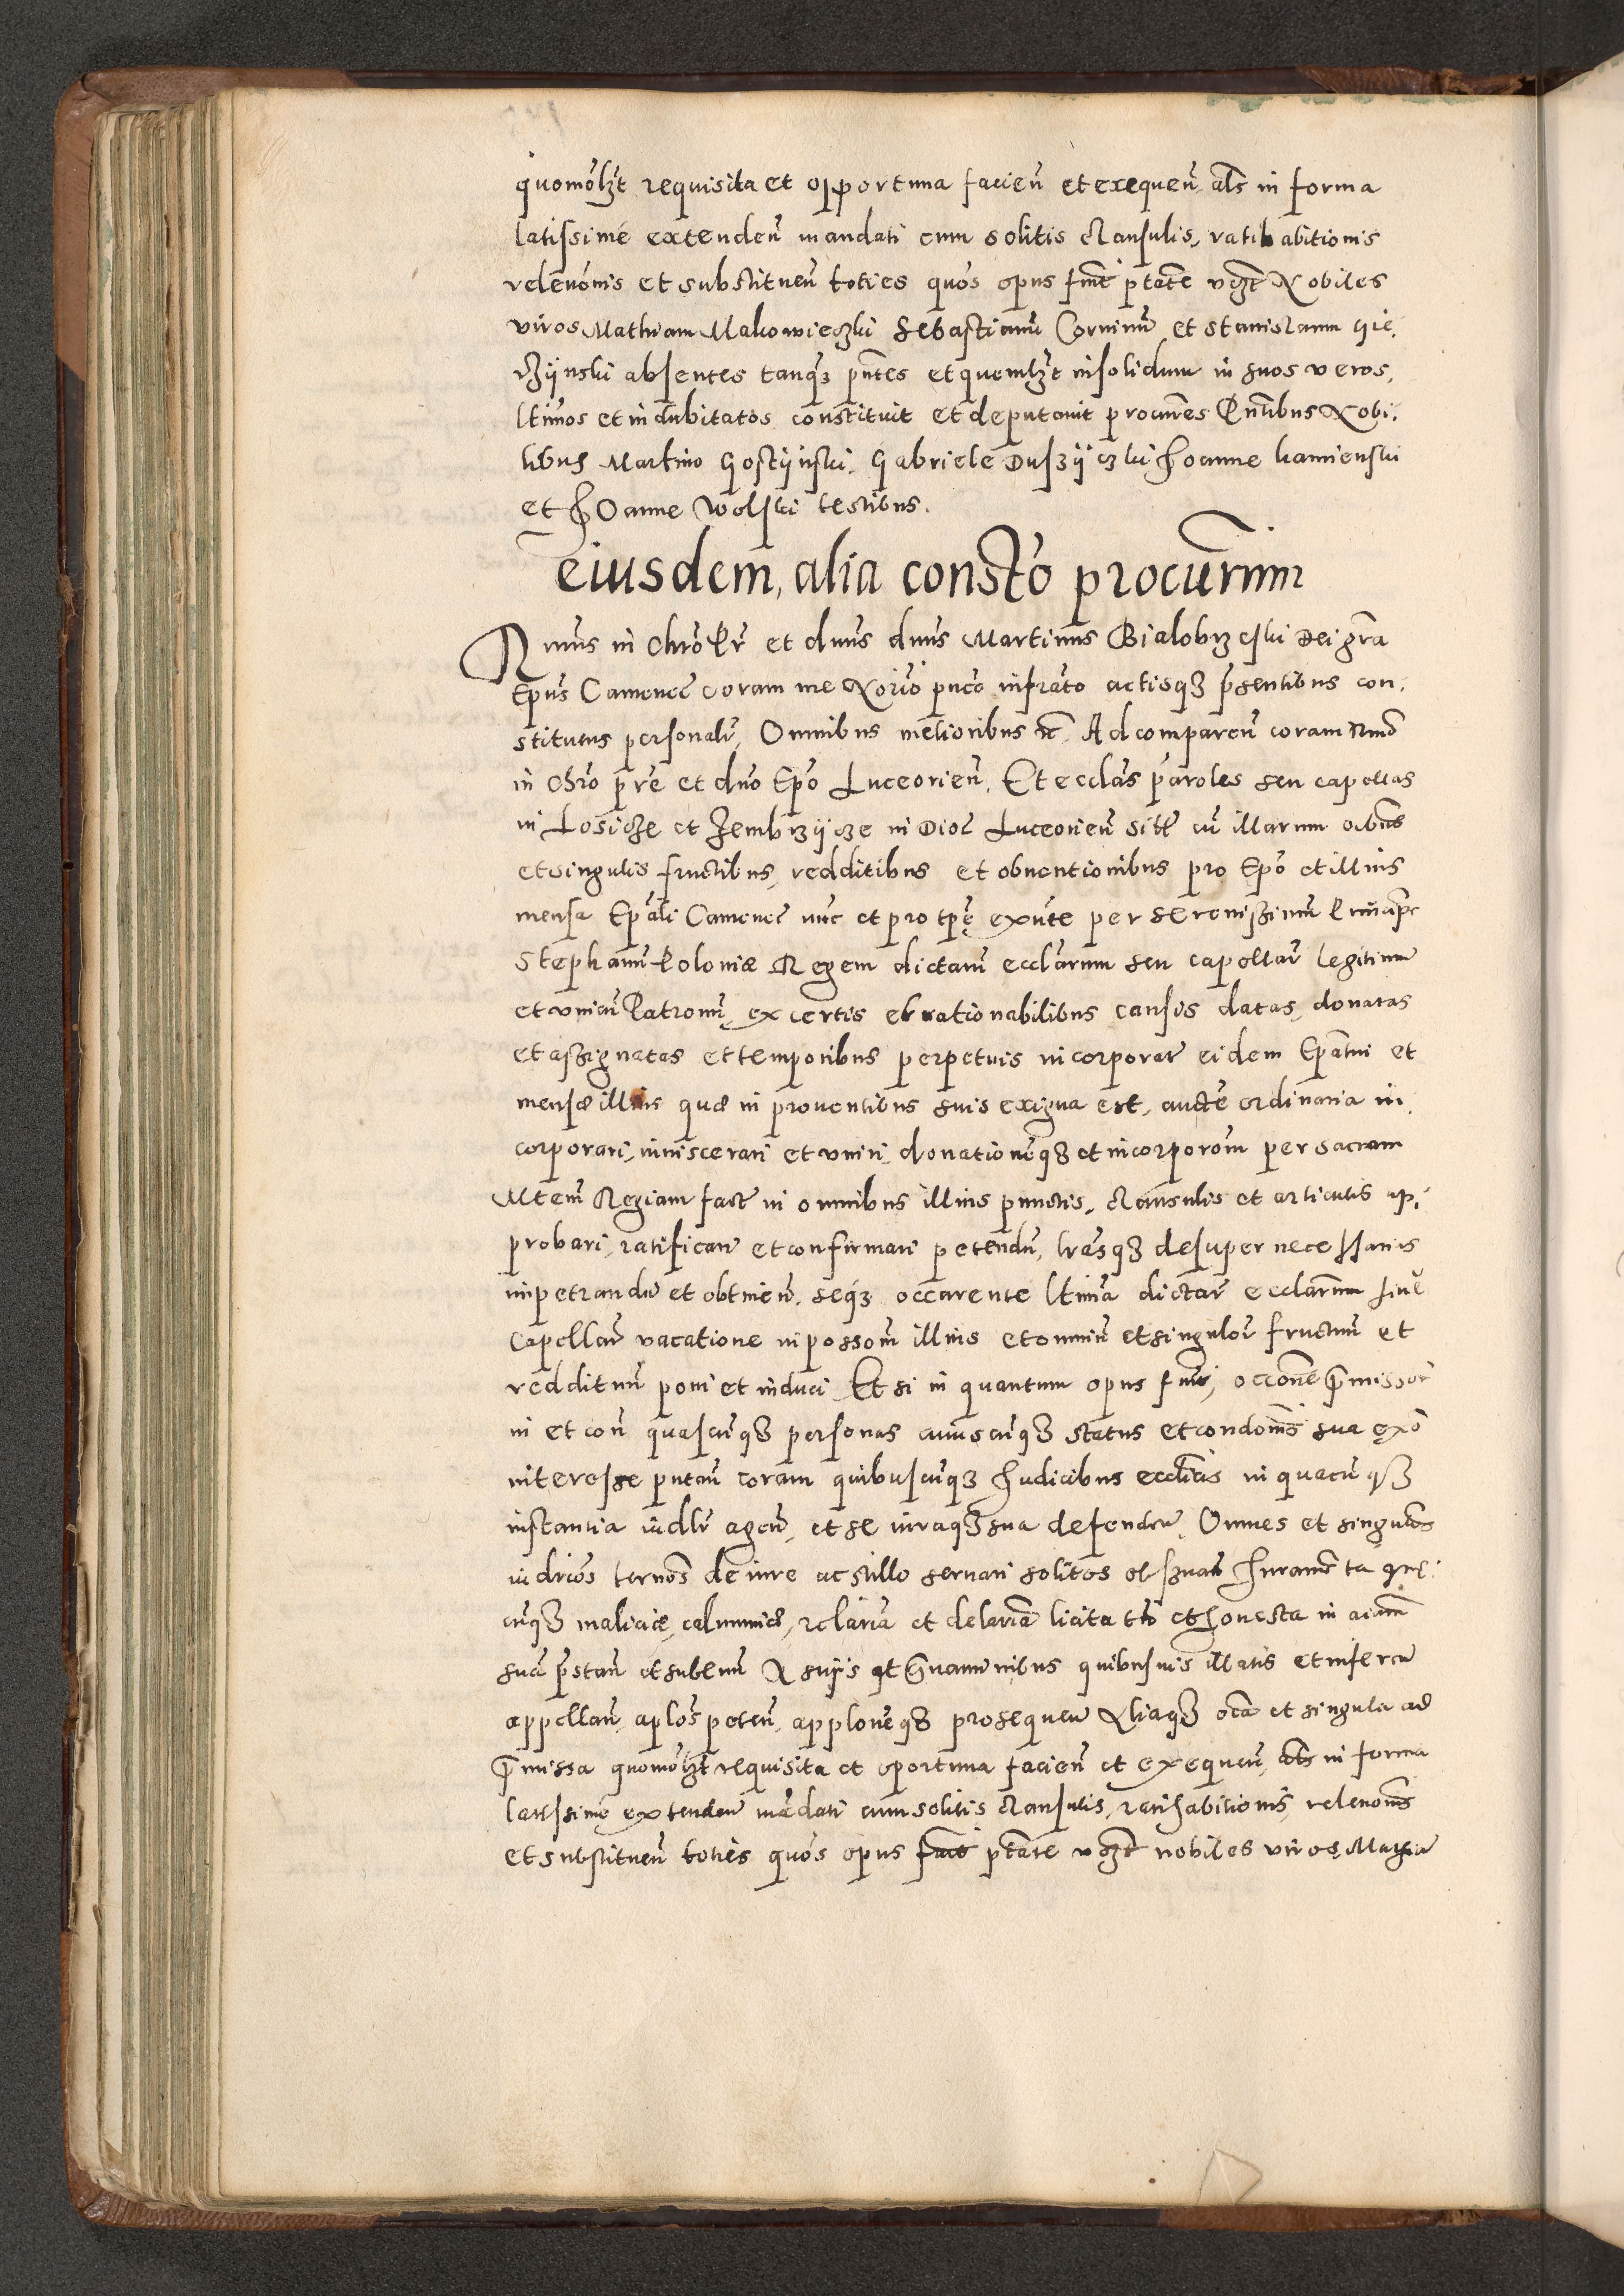 quomõlꝫt requisita et opportuna facieñ et exequeñ als̃ in forma
latissimé extendeñ mandati cum solitis clausulis, ratihabitionis
releuõnis et substitueñ toties quõs opus fuñt ptãte vigẽ Nobiles
viros Mathiam Makowieczki Sebastianũ Corninũ et Stanislaum
absentes tanqꝫ pñtes et quemlꝫt insolidum in suos veros,
ltimos et indubitatos constituit et deputauit procũres Pñtibus Nobi,
libus Martino Gostÿnski, Gabriele Duszÿczki Joanne kamienski
et Joanne Wolski testibus.
Eiusdem, alia constõ procũrum
Rmũs in Chrõ Pr̃ et dnũs dnũs Martinus Bialobrzeski Dei grã
Epũs Cameneč coram me Notrio puco infrãto actisqꝫ p̃sentibus con,
stitutus personalr̃, Omnibus melioribus ꝛc Ad compareñ coram Rmõ
in Chrõ p̃re et dnõ Epõ Luceorieñ, Et ecclãs paroles seu capellas
in Losicze et Zembrzÿcze in Dioč Luceorieñ sitt̃ cũ illarum oĩbus
et singulis fructibus, redditibus et obuentionibus pro Epõ et illius
mensa Epãli Cameneč nũc et pro tp̃e exñte per Serenissimũ Principẽ
Stephanũ Poloniæ Regem dictarũ ecclãrum seu capellar̃ legitimũ
et vnicũ Patronũ, ex certis et rationabilibus causis datas, donatas
et assignatas et temporibus perpetuis incorporat̃ eidem Epãtui et
mensæ illius quæ in prouentibus suis exigua est, aucte ordinaria in,
corporari, inuiscerari et vniri, donationẽqꝫ et incorporõm per sacram
Mtem̃ Regiam fact̃ in omnibus illius punctis, clausulis et articulis ap,
probari, ratificari et confirmari petendũ, lrãsqꝫ desuper necessarias
impetrandũ et obtineñ, seqꝫ occurente ltimã dictar̃ ecclãrum siue
capellar̃ vacatione in possom̃ illius et omniũ et singulor̃ fructuum et
reddituũ poni et induci Et si in quantum opus fuer̃, occõne p̃missor̃
in et con̄ quascũqꝫ personas cuiuscũqꝫ status et condõnis sua exõ
interesse putañ coram quibuscũqꝫ Judicibus ecclicis in quacũqꝫ
instantia iudlr̃ ageñ, et se iuraqꝫ sua defendeñ, Omnes et singulos
iudrios ternos de iure ac stillo seruari solitos obseruañ Juramẽta que,
cũqꝫ maliciæ, calumniæ, relaria et delaria licita tñ et honesta in aiam
suã p̃stañ et subeuñ A suijs et grauaminibus quibusuis illatis et infereñ
appellañ, aplos peteñ, applonẽqꝫ prosequeñ Aliaqꝫ oĩa et singula ad
p̃missa quomõlꝫt requisita et oportuna facieñ et exequeñ, als̃ in forma
latissimé extendeñ mãdati cum solitis clausulis, ratihabitionis, releuonis
et substitueñ toties quõs opus fuñt ptãte vigẽ nobiles viros, Mathiã